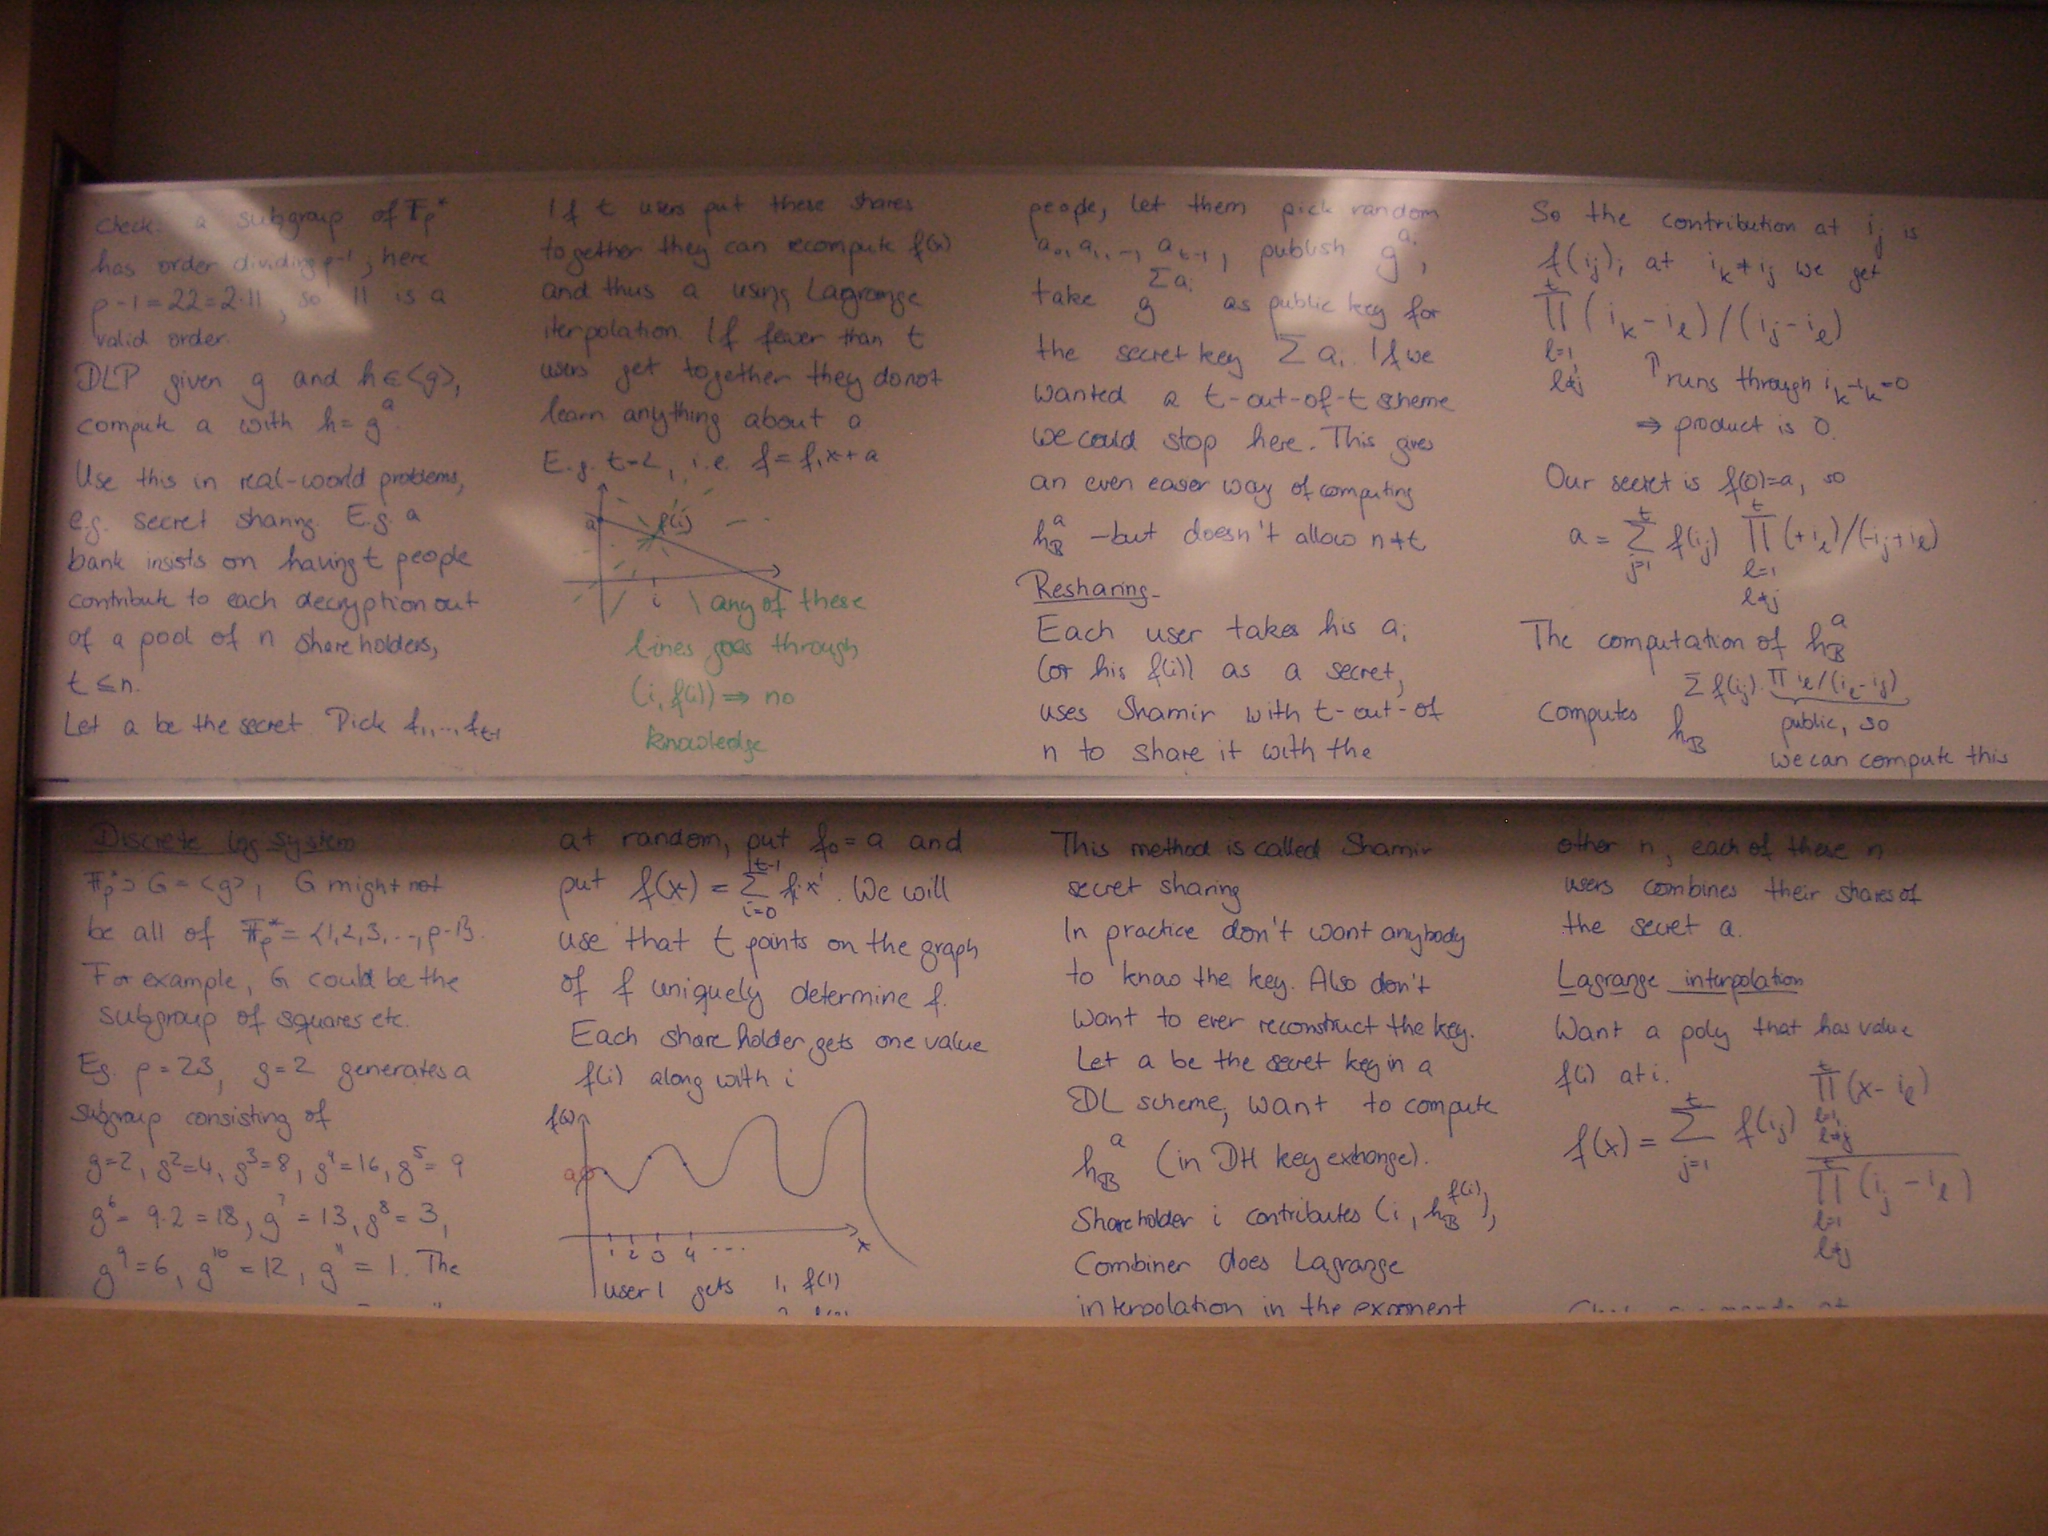 Discrete log system
𝔽p* ⊃ G = <g>, G might not
be all of 𝔽p* = {1,2,3,...,p-1}.
For example, G could be the
subgroup of squares etc.
Eg. p = 23, g=2 generates a
subgroup consisting of
g=2, g²=4, g³=8, g⁴=16, g⁵=9
g⁶= 9·2 = 18, g⁷=13, g⁸=3,
g⁹=6, g¹⁰=12, g¹¹=1. The
check: a subgroup of 𝔽p*
has order dividing p-1; here
p-1=22=2·11, so 11 is a
valid order.
DLP given g and h∈<g>,
compute a with h=g^a.
Use this in real-world problems,
e.g. secret sharing. E.g. a
bank insists on having t people
contribute to each decryption out
of a pool of n share holders,
t ≤ n.
Let a be the secret. Pick f₁,..., f_{t-1}
at random, put f₀=a and
put f(x) = Σ_{i=0}^{t-1} fᵢxⁱ. We will
use that t points on the graph
of f uniquely determine f.
Each share holder gets one value
f(i) along with i
f(x)
a
1 2 3 4 ...
x
user 1 gets 1, f(1)
If t users put these shares
together they can recompute f(x)
and thus a using Lagrange
iterpolation. If fewer than t
users get together they do not
learn anything about a
E.g. t=2, i.e. f = f₁x+a
a
f(i)
i
any of these
lines goes through
(i, f(i)) ⇒ no
knowledge
This method is called Shamir
secret sharing
In practice don't want anybody
to know the key. Also don't
want to ever reconstruct the key.
Let a be the secret key in a
DL scheme, want to compute
h_B^a (in DH key exhange).
Shareholder i contributes (i, h_B^{f(i)}),
Combiner does Lagrange
interpolation in the exponent
people, let them pick random
a₀, a₁, ..., a_{t-1}, publish g^{aᵢ},
take g^{Σaᵢ} as public key for
the secret key Σaᵢ. If we
wanted a t-out-of-t scheme
we could stop here. This gives
an even easier way of computing
h_B^a - but doesn't allow n≠t.
Resharing
Each user takes his aᵢ
(or his f(i)) as a secret,
uses Shamir with t-out-of
n to share it with the
other n, each of these n
users combines their shares of
the secret a.
Lagrange interpolation
Want a poly that has value
f(i) at i.
f(x) = Σ_{j=1}^{t} f(i_j) ∏_{l=1, l≠j}^{t} (x-i_l) / ∏_{l=1, l≠j}^{t} (i_j - i_l)
So the contribution at i_j is
f(i_j); at i_k≠i_j we get
∏_{l=1, l≠j}^{t} (i_k-i_l)/(i_j-i_l)
↑ runs through i_k-i_k=0
⇒ product is 0.
Our secret is f(0)=a, so
a = Σ_{j=1}^{t} f(i_j) ∏_{l=1, l≠j}^{t} (+i_l)/(-i_j+i_l)
The computation of h_B^a
computes h_B^{Σ f(i_j)·∏ i_l/(i_l-i_j)}
public, so
we can compute this